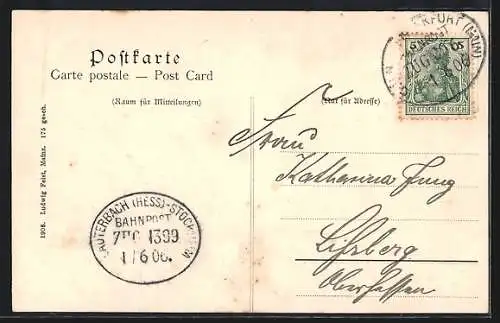 Postkarte
Carte postale — Post Card
(Raum für Mitteilungen)
(Nur für Adresse)
DEUTSCHES REICH
5 5
Frau
Katharina Jung
Lißberg
Oberhessen
LAUTERBACH (HESS)-STOCKHEIM
BAHNPOST
ZUG 1399
1/6 06.
FRANKFURT (MAIN)
BAHNPOST
ZUG
1906. Ludwig Feist, Mainz. 175 gesch.